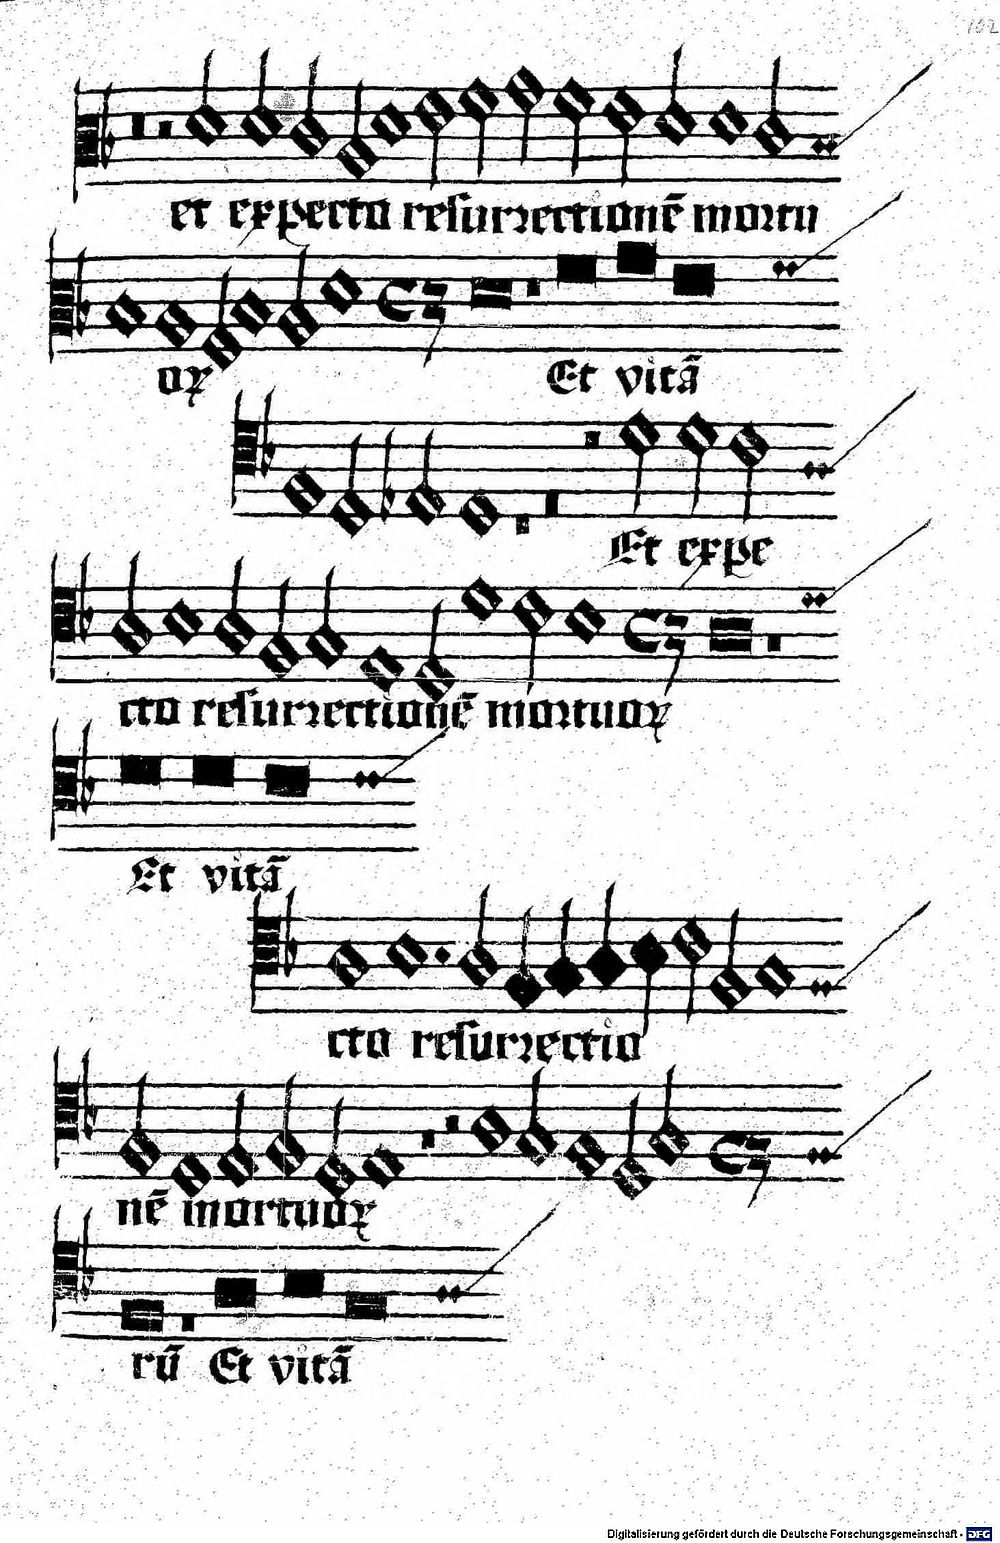 102
et expecto resurrectionē mortu
oꝝ Et vitā
Et expe
cto resurrectionē mortuoꝝ
Et vitā
cto resurrectio
nē mortuoꝝ
rū Et vitā
Digitalisierung gefördert durch die Deutsche Forschungsgemeinschaft - DFG